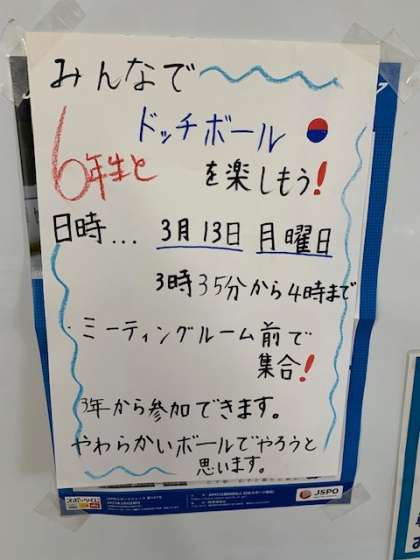 みんなで
6年生と
ドッチボール
を楽しもう!
日時... 3月13日 月曜日
3時35分から4時まで
・ミーティングルーム前で
集合!
3年から参加できます。
やわらかいボールでやろうと
思います。
JSPO